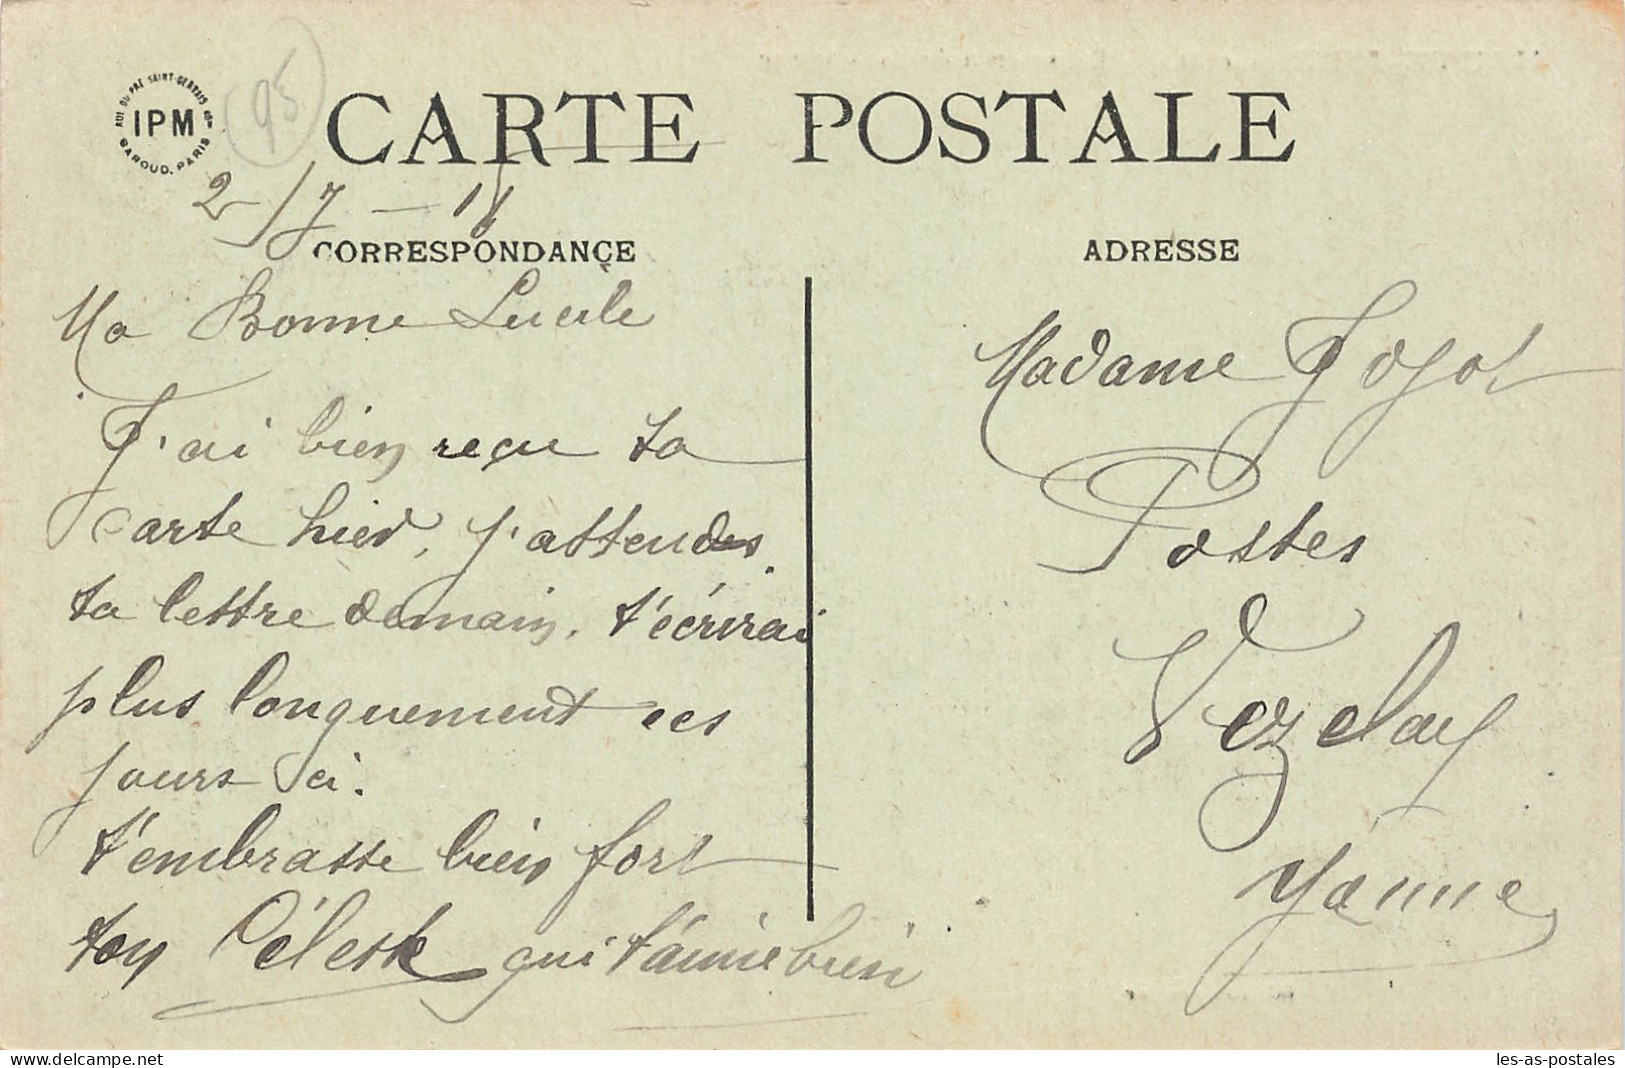 RUE DU PRÉ SAINT-GERVAIS
IPM
BAROUD. PARIS
95
CARTE POSTALE
2/7 - 18
CORRESPONDANCE
ADRESSE
Ma Bonne Lucile
J'ai bien reçu ta
carte hier, j'attendes
ta lettre demain. t'écrirai
plus longuement ces
jours ci.
t'embrasse bien fort
ton Céleste qui t'aime bien
Madame Jojot
Postes
Vezelay
Yonne
delcampe.net
les-as-postales